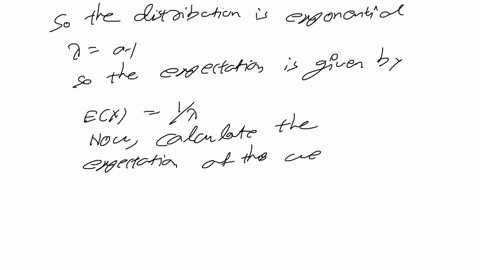 So the distribution is exponential
λ = 0.1
so the expectation is given by
E(X) = 1/λ
Now, calculate the
expectation of the